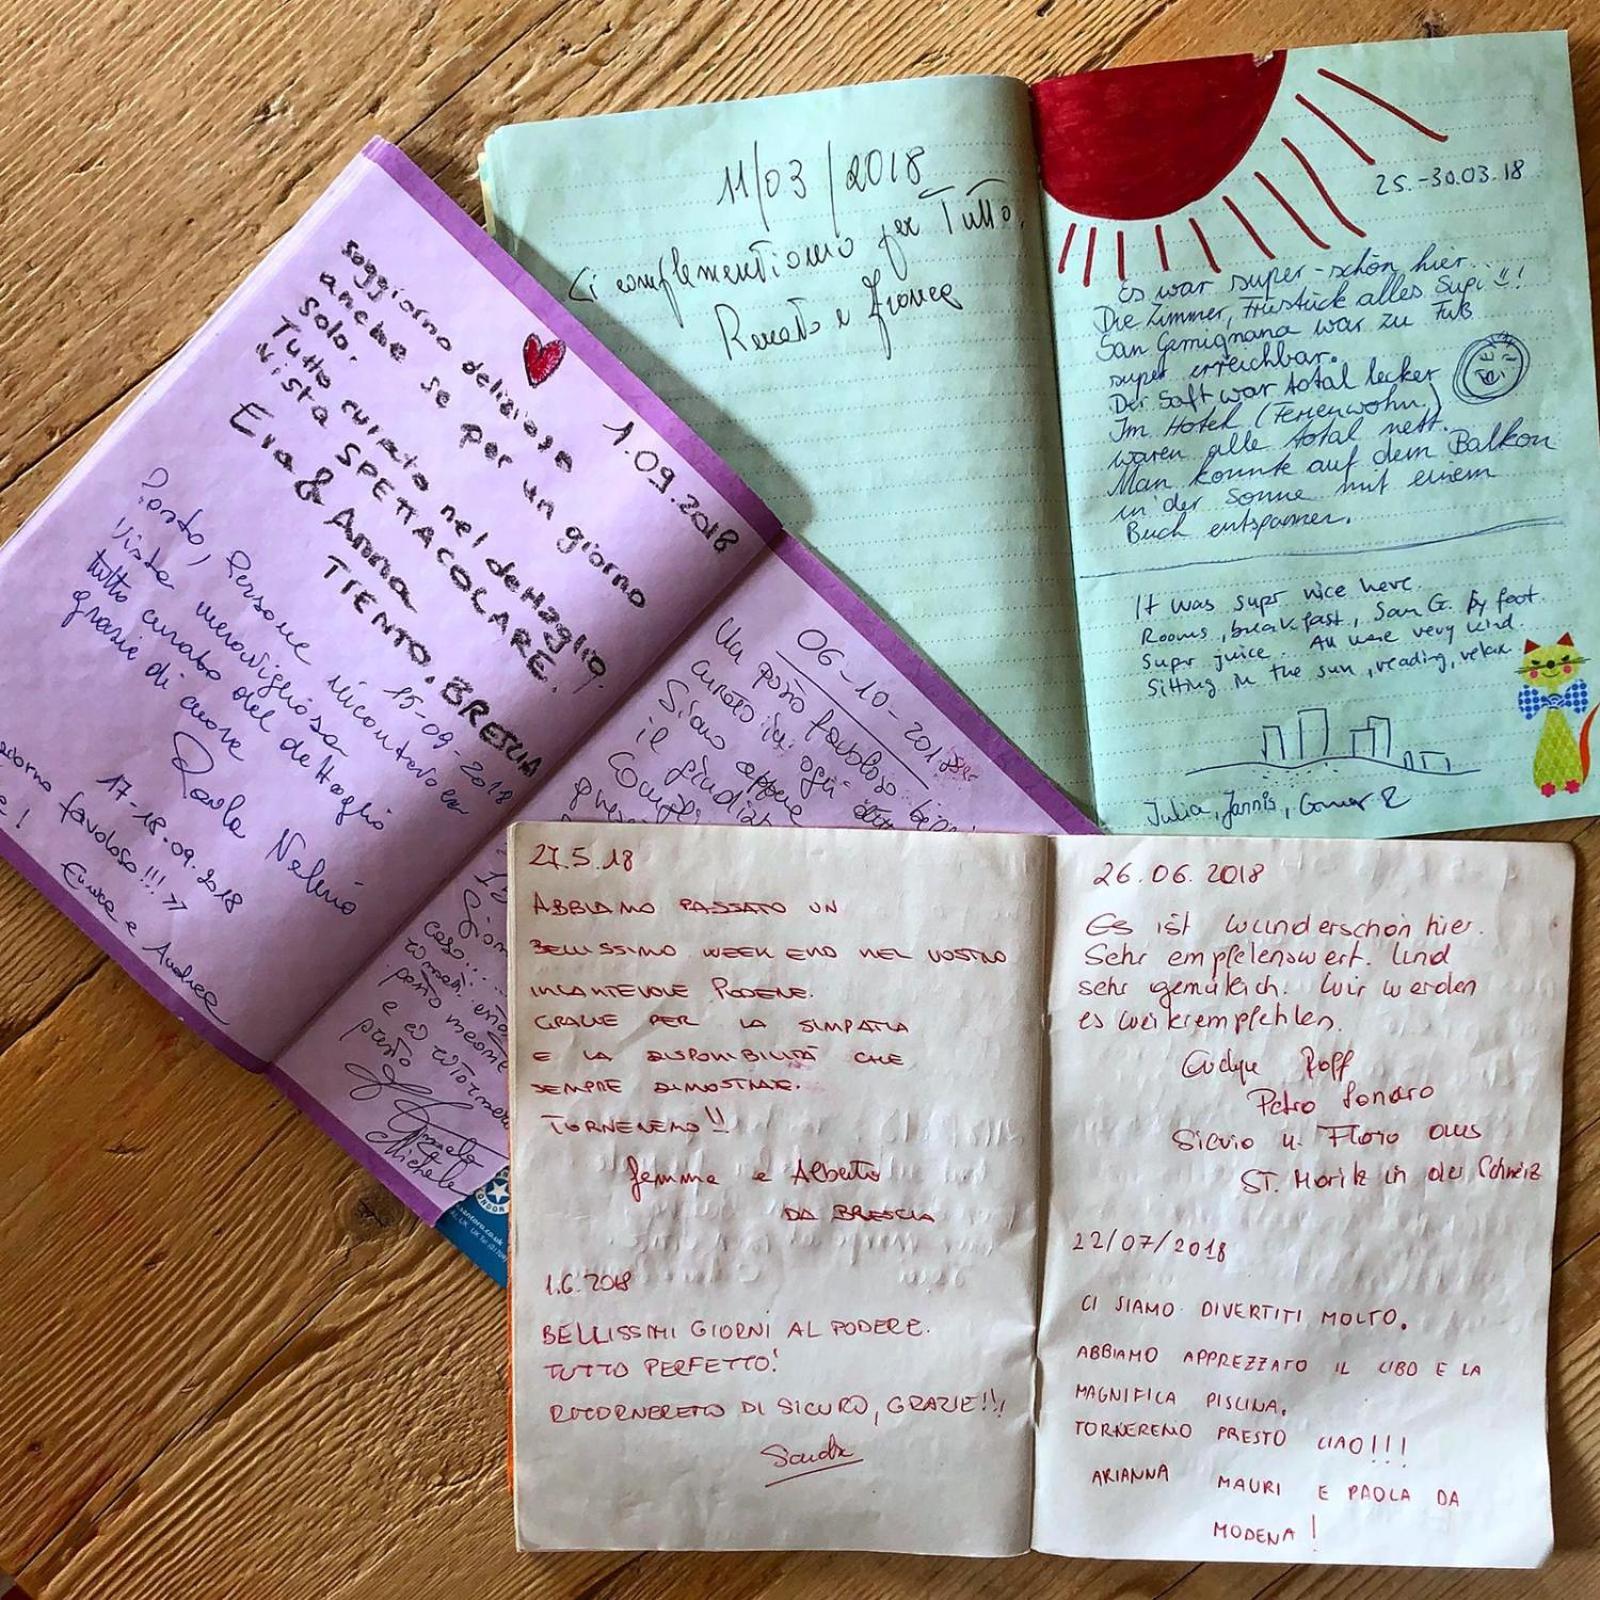 11/03/2018
Ci complimentiamo per Tutto.
Renato e Franca
25.-30.03.18
Es war super-schön hier.
Die Zimmer, Früstück alles Supi!!!
San Gemignana war zu Fuß
super erreichbar.
Der Saft war total lecker
Im Hotel (Ferienwohn.)
waren alle total nett.
Man konnte auf dem Balkon
in der Sonne mit einem
Buch entspannen.
It was supr nice here.
Rooms, breakfast, San G. by foot.
Supr juice. All were very kind.
Sitting in the sun, reading, relax
Julia, Jannis,
1.09.2018
soggiorno delizioso
anche se per un giorno
solo.
Tutto curato nel dettaglio.
Vista SPETTACOLARE.
Eva & Anna
TIENTO. BRESCIA
15-09-2018
Posto, Persone
Vista meravigliosa
tutto curato del dettaglio
grazie di cuore
Paola
17-18.09.2018
favoloso!!!
e Andrea
06-10-201
Un posto favoloso
curato in ogni
Siamo appena
il
posto
e
presto
Michele
27.5.18
ABBIAMO PASSATO UN
BELLISSIMO WEEK END NEL VOSTRO
INCANTEVOLE PODERE.
GRAZIE PER LA SIMPATIA
E LA DISPONIBILITÀ CHE
SEMPRE DIMOSTRATE.
TORNEREMO!!
Gemma e Alberto
DA BRESCIA
1.6.2018
BELLISSIMI GIORNI AL PODERE.
TUTTO PERFETTO!
RITORNEREMO DI SICURO, GRAZIE!!!
26.06.2018
Es ist wunderschön hier.
Sehr empfelenswert. Und
sehr gemütlich. Wir werden
es weiterempfehlen.
Silvio u. Floro aus
ST. Moritz in der Schweiz
22/07/2018
CI SIAMO DIVERTITI MOLTO.
ABBIAMO APPREZZATO IL CIBO E LA
MAGNIFICA PISCINA.
TORNEREMO PRESTO CIAO!!!
ARIANNA MAURI E PAOLA DA
MODENA!